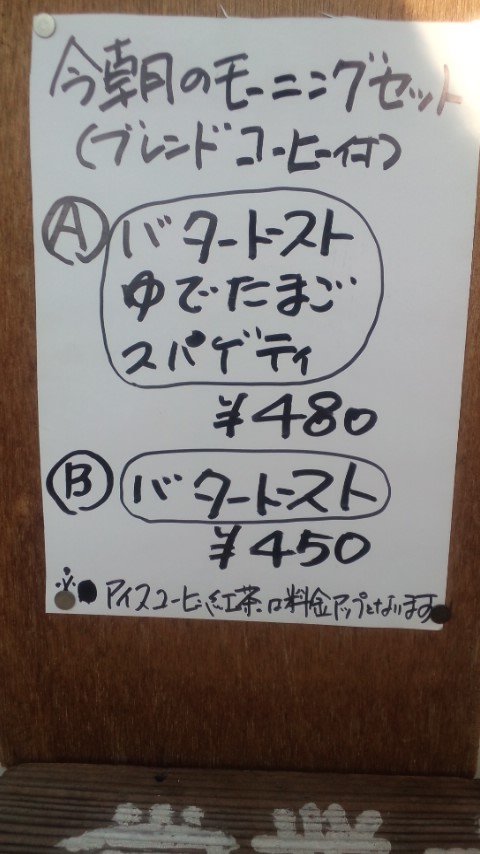 今朝のモーニングセット
(ブレンドコーヒー付)
Ⓐ バタートースト
ゆでたまご
スパゲティ
¥480
Ⓑ バタートースト
¥450
※● アイスコーヒー、紅茶は料金アップとなります